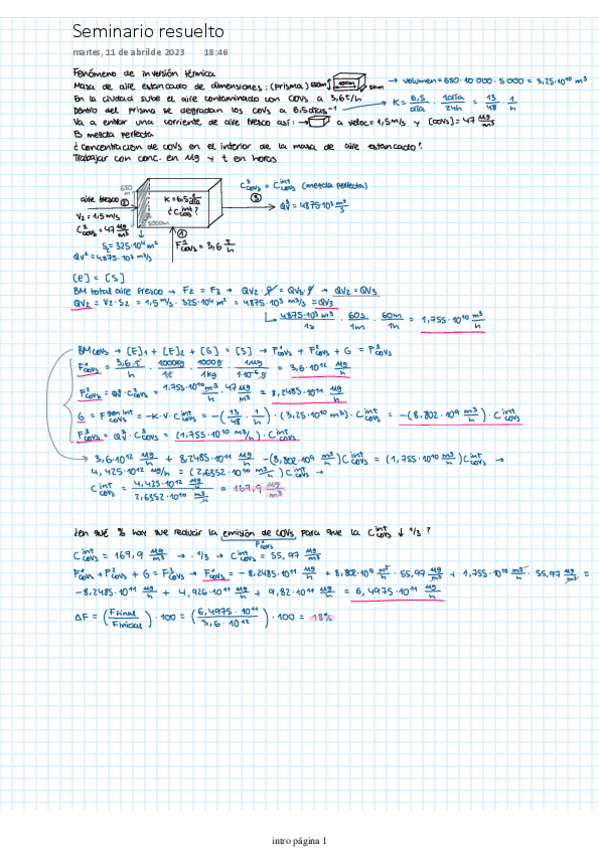 Seminario resuelto
martes, 11 de abril de 2023 18:46
Fenómeno de inversión térmica
Masa de aire estancado de dimensiones: (prisma) 650m → volumen = 650 · 10 000 · 5 000 = 3,25·10¹⁰ m³
En la ciudad sube el aire contaminado con COVs a 3,6 t/h → K = 6,5/día · 1día/24h = 13/48 · 1/h
Dentro del prisma se degradan los COVs a 6,5 días⁻¹
Va a entrar una corriente de aire fresco así: → a veloc = 1,5 m/s y [COVs] = 47 µg/m³
Es mezcla perfecta
¿Concentración de COVs en el interior de la masa de aire estancado?
Trabajar con conc. en µg y t en horas
650 m
aire fresco ①
V₂ = 1,5 m/s
C²COVs = 47 µg/m³
K = 6,5/día
¿C int COVs?
5000m
C³COVs = C int COVs (mezcla perfecta)
③ → QV³ = 4875·10³ m³/s
S₂ = 325·10⁴ m²
QV² = 4875·10³ m³/s
① F¹COVs = 3,6 t/h
[E] = [S]
BM total aire fresco → F₂ = F₃ → QV₂ · ρ = QV₃ · ρ → QV₂ = QV₃
QV₂ = V₂ · S₂ = 1,5 m/s · 325·10⁴ m² = 4875·10³ m³/s = QV₃
4875·10³ m³/1s · 60s/1m · 60m/1h = 1,755·10¹⁰ m³/h
BM COVs → [E]₁ + [E]₂ + [G] = [S] → F¹COVs + F²COVs + G = F³COVs
F¹COVs = 3,6 t/h · 1000kg/1t · 1000g/1kg · 1µg/1·10⁻⁶g = 3,6·10¹² µg/h
F²COVs = QV² · C²COVs = 1,755·10¹⁰ m³/h · 47 µg/m³ = 8,2485·10¹¹ µg/h
G = F gen int COVs = -K · V · C int COVs = -(13/48 · 1/h) · (3,25·10¹⁰ m³) · C int COVs = -(8,802·10⁹ m³/h) · C int COVs
F³COVs = QV³ · C³COVs = (1,755·10¹⁰ m³/h) · C int COVs
3,6·10¹² µg/h + 8,2485·10¹¹ µg/h -(8,802·10⁹ m³/h) C int COVs = (1,755·10¹⁰ m³/h) C int COVs →
4,425·10¹² µg/h = (2,6352·10¹⁰ m³/h) C int COVs →
C int COVs = 4,425·10¹² µg/h / 2,6352·10¹⁰ m³/h = 167,9 µg/m³
¿En qué % hay que reducir la emisión de COVs para que la C int COVs ↓ 1/3 ?
F¹COVs
C int COVs = 167,9 µg/m³ → · 1/3 → C int COVs = 55,97 µg/m³
F¹COVs + F²COVs + G = F³COVs → F¹COVs = -8,2485·10¹¹ µg/h + 8,802·10⁹ m³/h · 55,97 µg/m³ + 1,755·10¹⁰ m³/h · 55,97 µg/m³ =
-8,2485·10¹¹ µg/h + 4,926·10¹¹ µg/h + 9,82·10¹¹ µg/h = 6,4975·10¹¹ µg/h
ΔF = (F final / F inicial) · 100 = (6,4975·10¹¹ / 3,6·10¹²) · 100 = 18%
intro página 1